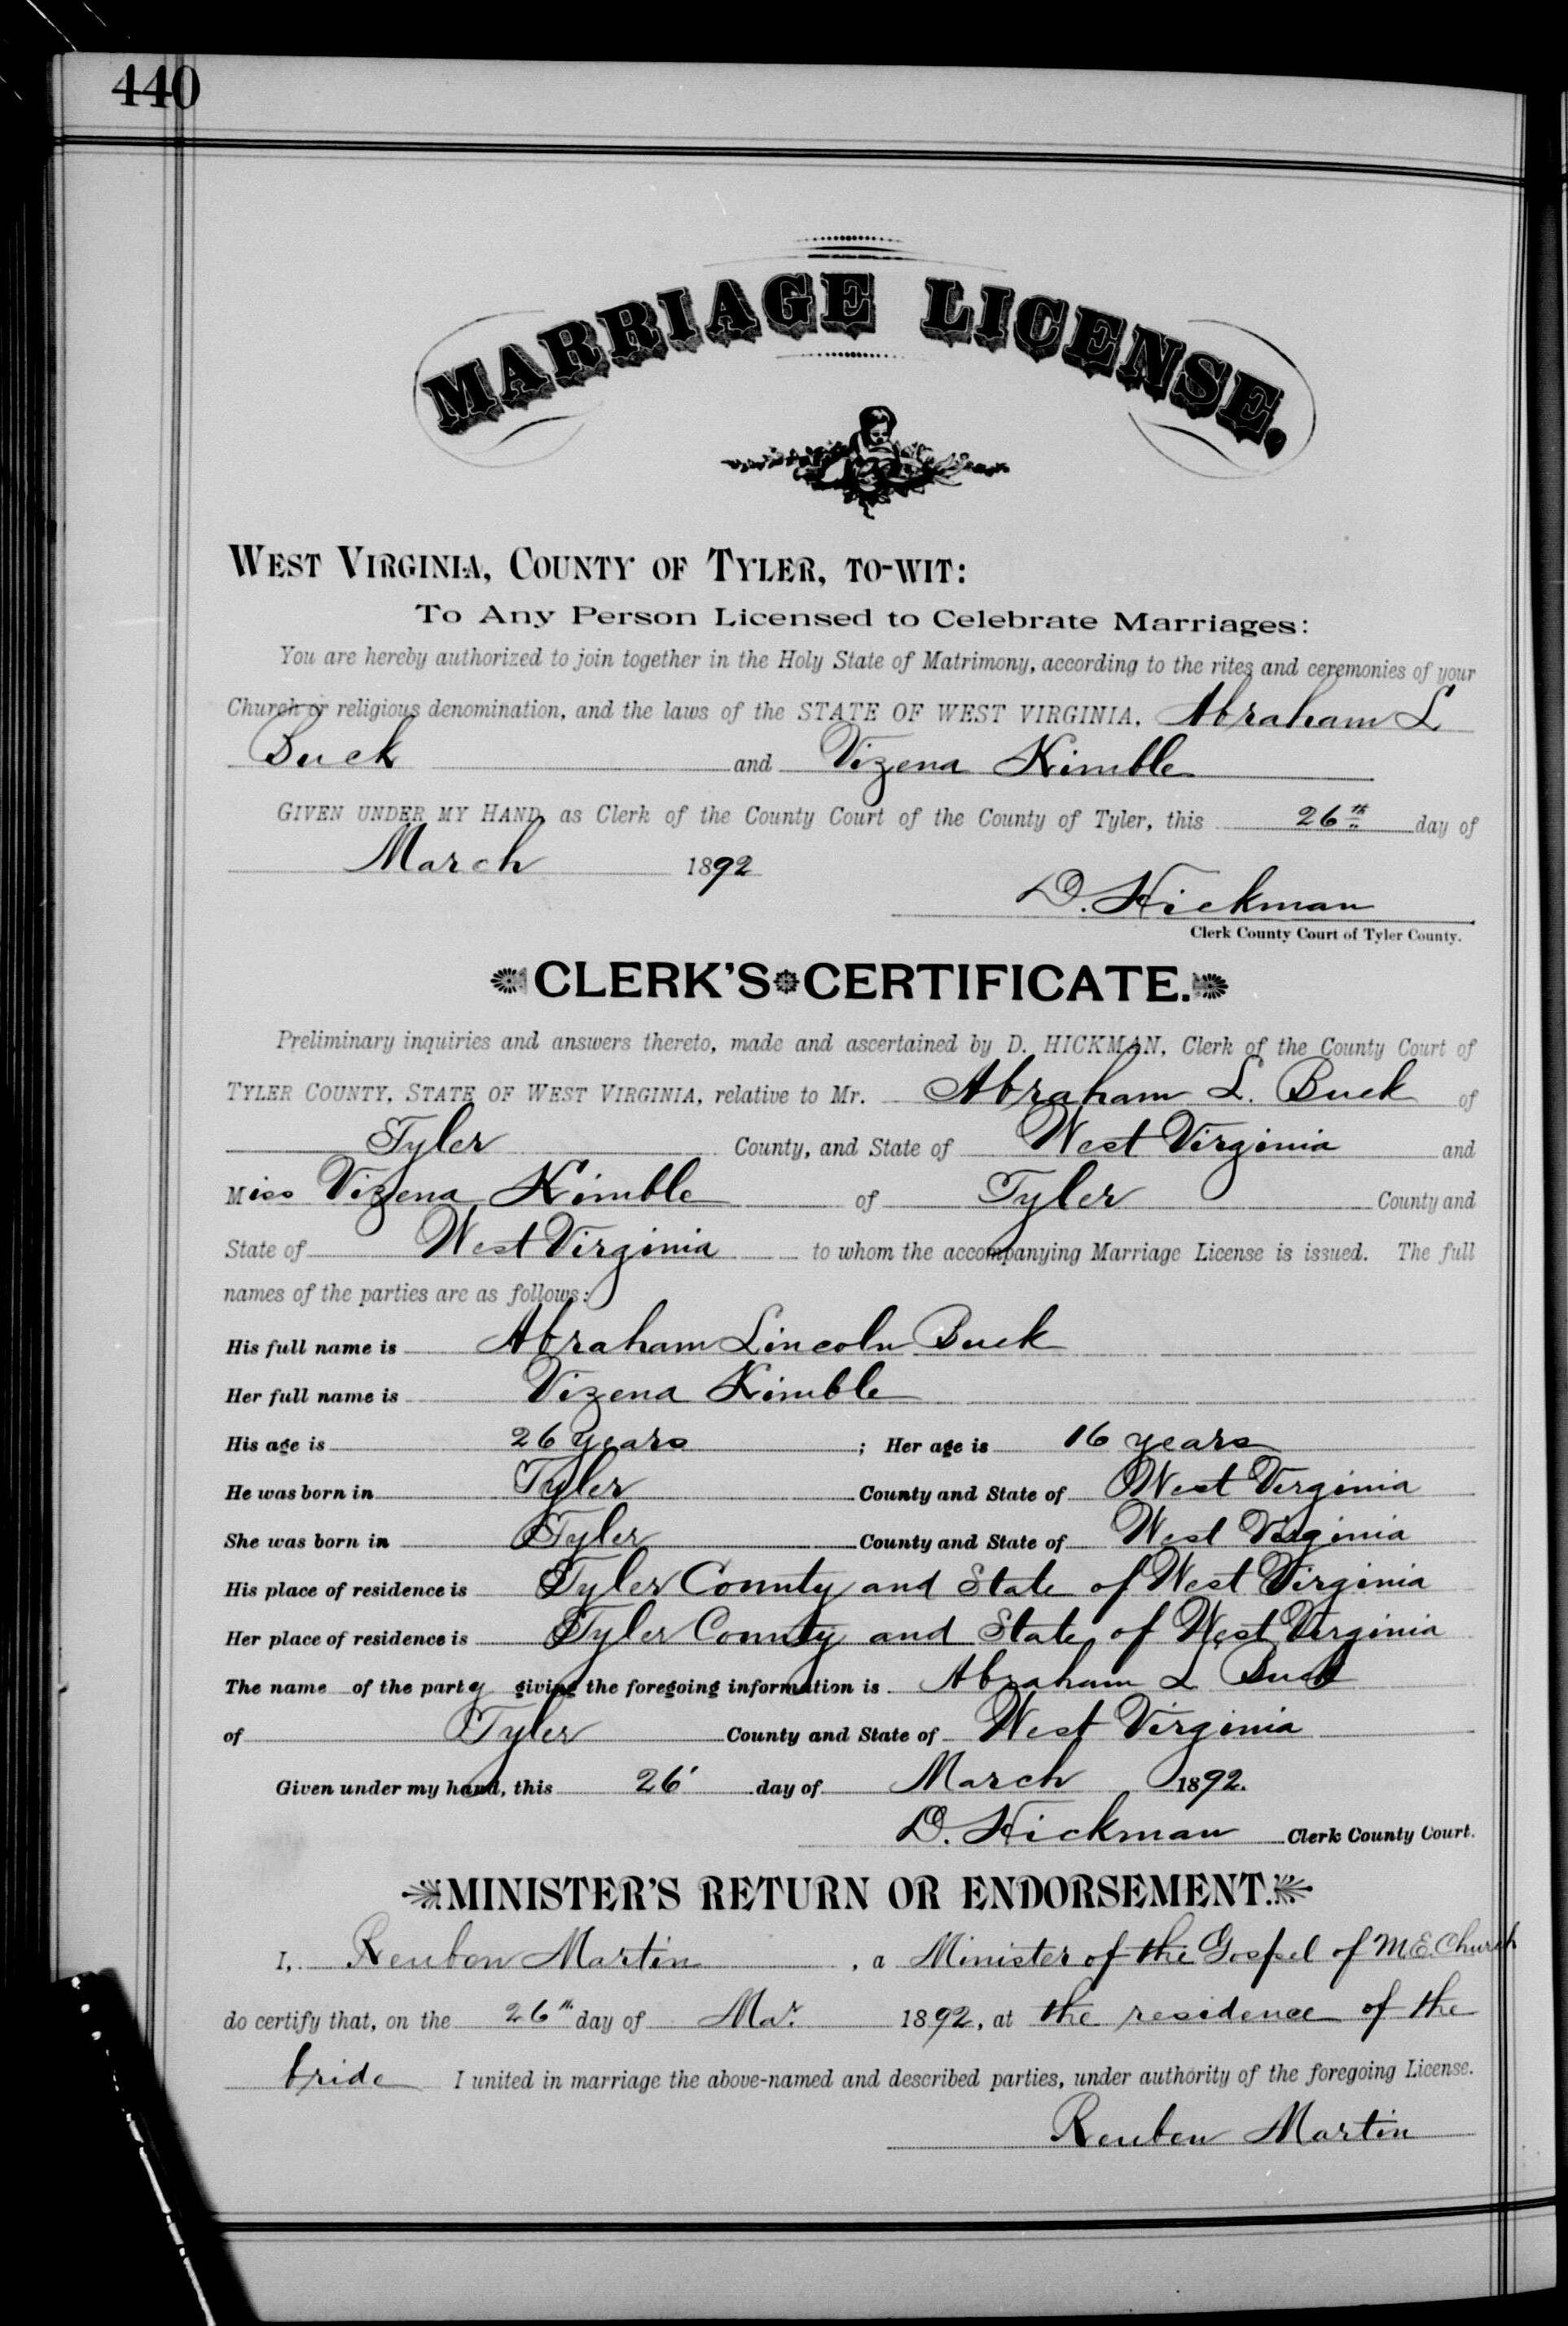 440
MARRIAGE LICENSE.
WEST VIRGINIA, COUNTY OF TYLER, TO-WIT:
To Any Person Licensed to Celebrate Marriages:
You are hereby authorized to join together in the Holy State of Matrimony, according to the rites and ceremonies of your
Church or religious denomination, and the laws of the STATE OF WEST VIRGINIA, Abraham L
Buck and Vizena Kimble
GIVEN UNDER MY HAND, as Clerk of the County Court of the County of Tyler, this 26th day of
March 1892
D. Hickman
Clerk County Court of Tyler County.
CLERK'S CERTIFICATE.
Preliminary inquiries and answers thereto, made and ascertained by D. HICKMAN, Clerk of the County Court of
TYLER COUNTY, STATE OF WEST VIRGINIA, relative to Mr. Abraham L. Buck of
Tyler County, and State of West Virginia and
Miss Vizena Kimble of Tyler County and
State of West Virginia to whom the accompanying Marriage License is issued. The full
names of the parties are as follows:
His full name is Abraham Lincoln Buck
Her full name is Vizena Kimble
His age is 26 years ; Her age is 16 years
He was born in Tyler County and State of West Virginia
She was born in Tyler County and State of West Virginia
His place of residence is Tyler County and State of West Virginia
Her place of residence is Tyler County and State of West Virginia
The name of the party giving the foregoing information is Abraham L Buck
of Tyler County and State of West Virginia
Given under my hand, this 26' day of March 1892.
D. Hickman Clerk County Court.
MINISTER'S RETURN OR ENDORSEMENT.
I, Reuben Martin, a Minister of the Gospel of M.E. Church
do certify that, on the 26th day of Mar. 1892, at the residence of the
bride I united in marriage the above-named and described parties, under authority of the foregoing License.
Reuben Martin